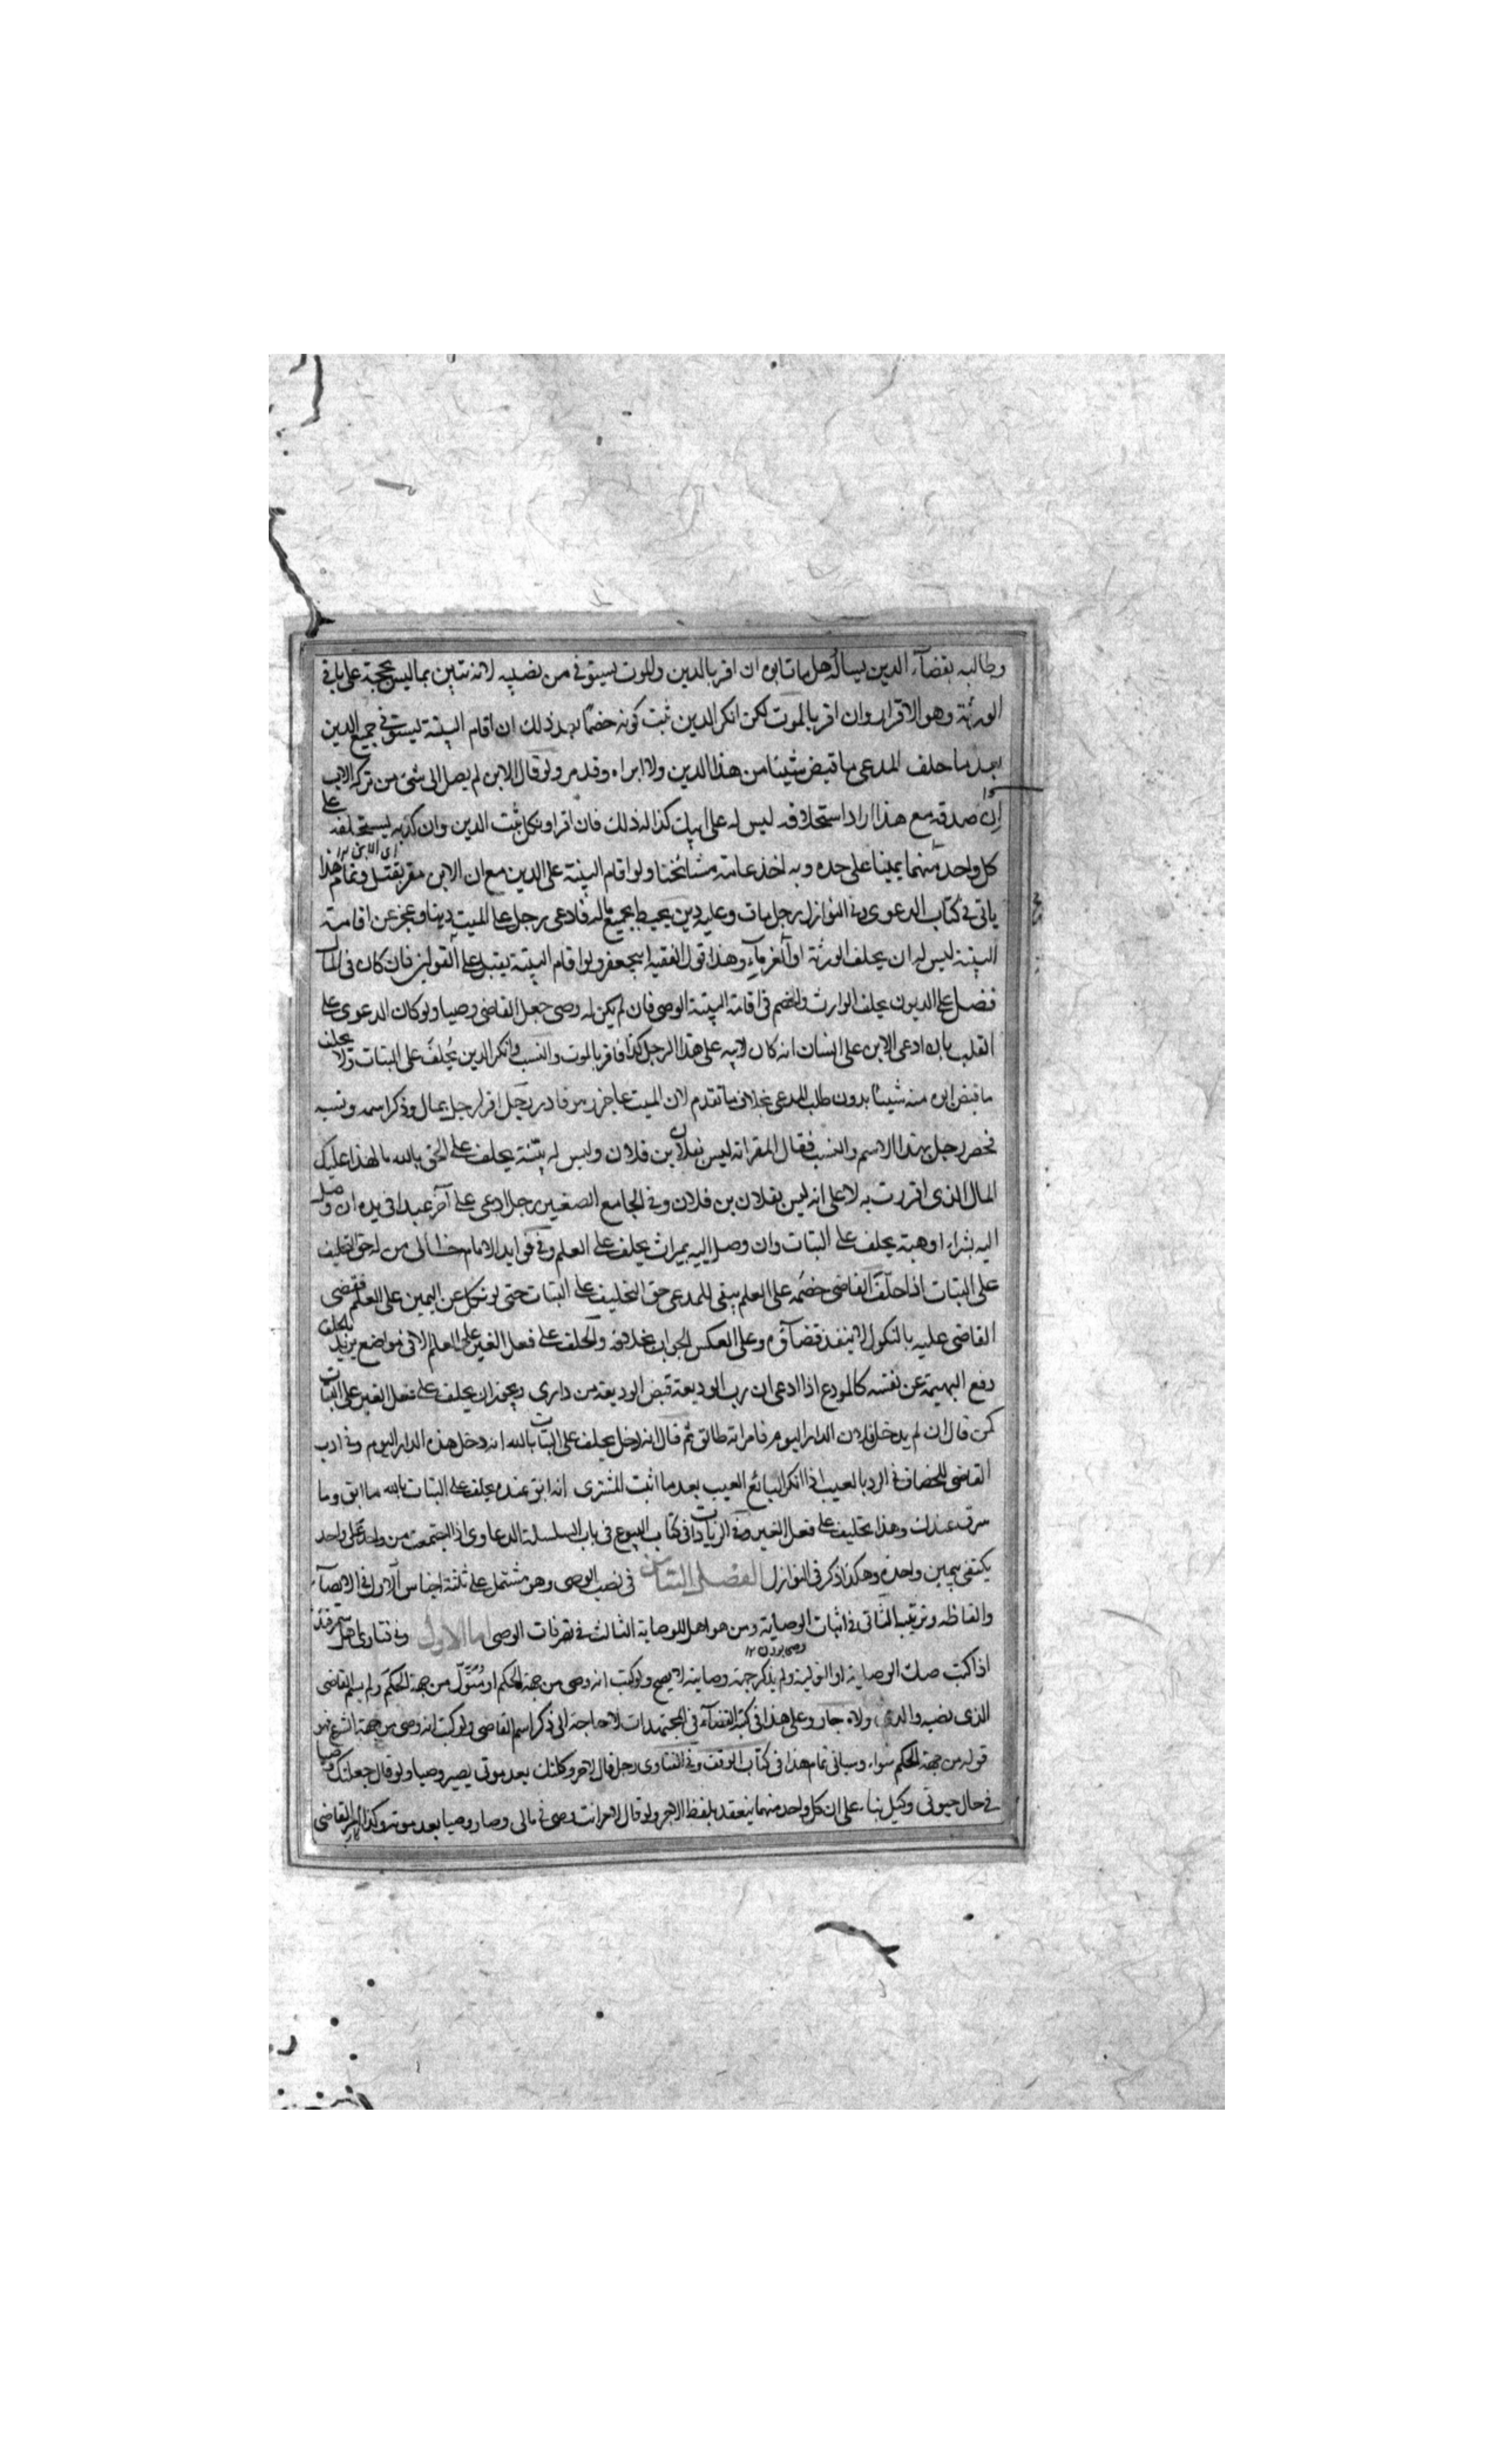 وطالبه بقضآء الدين يساله هل مات ابوه ان اقر بالدين والموت يستوفى من نصيبه لانه تبين بما ليس بحجة على باقى
الورثة وهو الاقرار وان اقر بالموت لكن انكر الدين ثبت كونه خصمًا بعد ذلك ان اقام البينة يستوفى جميع الدين
بعد ما حلف المدعى ما قبض شيئا من هذا الدين ولا ابراه وقد مر ولو قال الابن لم يصل الى شئ من تركة الاب
ان صدقه مع هذا اراد استحلافه ليس له على ابيك كذا له ذلك فان اقر او نكل ثبت الدين وان كذبه يستحلفه على
كل واحد منهما يمينا على حده وبه اخذ عامة مشائخنا ولو اقام البينة على الدين مع ان الابن مقر يقبل وتمام هذا
ياتى فى كتاب الدعوى وفى النوازل رجل مات وعليه دين يحيط بجميع ماله فادعى رجل على الميت دينا وعجز عن اقامة
البينة ليس له ان يحلف الورثة او الغرمآء وهذا قول الفقيه ابيجعفر ولو اقام البينة يقبل على القولين فان كان فى المال
فضل على الديون يحلف الوارث والخصم فى اقامة البينة الوصى فان لم يكن له وصى جعل القاضى وصيا ولو كان الدعوى على
القلب بان ادعى الابن على انسان انه كان لابيه على هذا الرجل كذا فاقر بالموت والنسب وانكر الدين يُحلف على البتات ولا يحلف
ما قبض ابوه منه شيئا بدون طلب المدعى بخلاف ما تقدم لان الميت عاجز رجل اقر لرجل بمال وذكر اسمه ونسبه
فحضر رجل بهذا الاسم والنسب فقال المقر انه ليس بفلان بن فلان وليس له بيّنة يحلف على الحق بالله ما لهذا عليك
المال الذى اقررت به لا على انه ليس بفلان بن فلان وفى الجامع الصغير رجل ادعى على آخر عبدا فى يده ان وصل
اليه بشراء او هبة يحلف على البتات وان وصل اليه بميراث يحلف على العلم وفى فوايد الامام خالى من له حق التحليف
على البتات اذا حلّف القاضى خصمُه على العلم يبقى للمدعى حق التحليف على البتات حتى لو نكل عن اليمين على العلم فقضى
القاضى عليه بالنكول لا ينفذ قضآؤه وعلى العكس الجواب بخلافه والحلف على فعل الغير على العلم الا فى مواضع يريد الحالف
دفع اليمين عن نفسه كالمودع اذا ادعى ان رب الوديعة قبض الوديعة من دارى ويجوز ان يحلف على فعل الغير على البتات
كمن قال ان لم يدخل فلان الدار اليوم فامراته طالق ثم قال انه دخل يحلف على البتات بالله انه دخل هذه الدار اليوم وفى ادب
القاضى للخصاف فى الرد بالعيب اذا انكر البائع العيب بعد ما اثبت المشترى انه ابق عنده يحلف على البتات بالله ما ابق وما
سرق عندك وهذا تحليف على فعل الغير وفى الزيادات فى كتاب البيوع فى باب السلسلة الدعاوى اذا اجتمعت من واحد على واحد
يكتفى بيمين واحدة وهكذا ذكر فى النوازل الفصل الثامن فى نصب الوصى وهو مشتمل على ثلثة اجناس الاول فى الايصآء
والفاظه وترتيبه الثانى فى اثبات الوصاية ومن هو اهل للوصاية الثالث فى تصرفات الوصى اما الاول وفى فتاوى اهل سمرقند
اذا كتب صك الوصاية او التولية ولم يذكر جهة وصايته لا يصح ولو كتب انه وصى من جهة الحكم او متولٍّ من جهة الحكم ولم يسم القاضى
الذى نصبه والذى ولاه جاز وعلى هذا فى كتبة القضآء فى المجتهدات لا حاجة الى ذكر اسم القاضى ولو كتب انه وصى من جهة الشرع فهو
قوله من جهة الحكم سواء وسياتى تمام هذا فى كتاب الوقف وفى الفتاوى رجل قال لاخر وكلتك بعد موتى يصير وصيا ولو قال جعلتك وصيا
فى حال حيوتى وكيل بناء على ان كل واحد منهما ينعقد بلفظ الاخر ولو قال لاخر انت وصى فى مالى وصار وصيا بعد موته وكذا القاضى